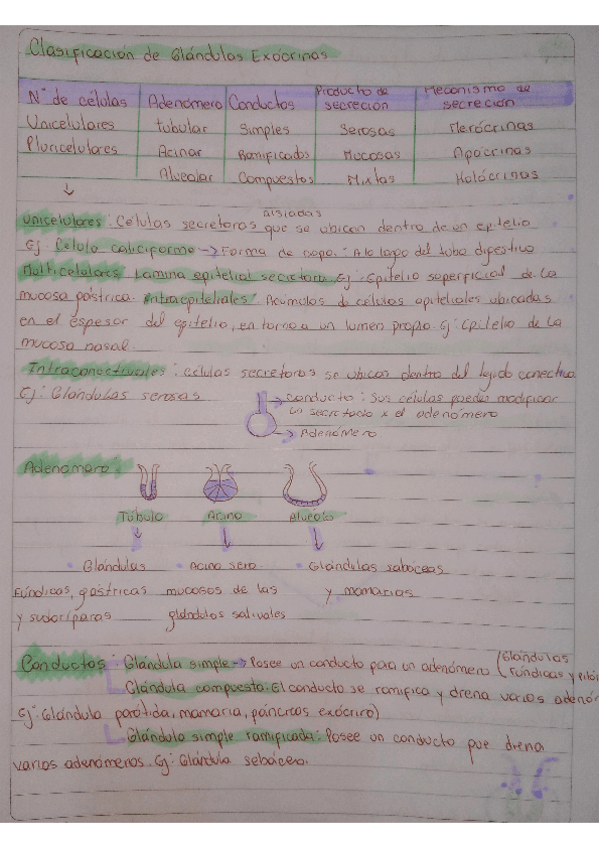 Clasificación de Glándulas Exócrinas
N° de células Adenómero Conductos Producto de secreción Mecanismo de secreción
Unicelulares tubular Simples Serosas Merócrinas
Pluricelulares Acinar Ramificados Mucosas Apócrinas
Alveolar Compuestos Mixtas Holócrinas
Unicelulares: Células secretoras aisladas que se ubican dentro de un epitelio
Ej: Célula caliciforme → Forma de copa. A lo largo del tubo digestivo
Multicelulares Lamina epitelial secretora. Ej: Epitelio superficial de la
mucosa gástrica. Intraepiteliales: Acúmulos de células epiteliales ubicadas
en el espesor del epitelio, en torno a un lumen propio. Ej: Epitelio de la
mucosa nasal.
Intraconectivales: células secretoras se ubican dentro del tejido conectivo
Ej: Glándulas serosas
→ Conducto: Sus células puede modificar
un secretado x el adenómero
→ Adenómero
Adenomero:
Túbulo Acino Alveolo
• Glándulas • Acino sero • Glándulas sabaceas
Fúndicas, gástricas mucosos de las y mamarias
y sudoríparas glándulas salivales
Conductos: Glándula simple → Posee un conducto para un adenómero (Glándulas
Fúndicas y
Glándula compuesta: El conducto se ramifica y drena varios
Ej: Glándula parótida, mamaria, páncreas exócrino)
Glándula simple ramificada: Posee un conducto que drena
varios adenómenos. Ej: Glándula sebácera.